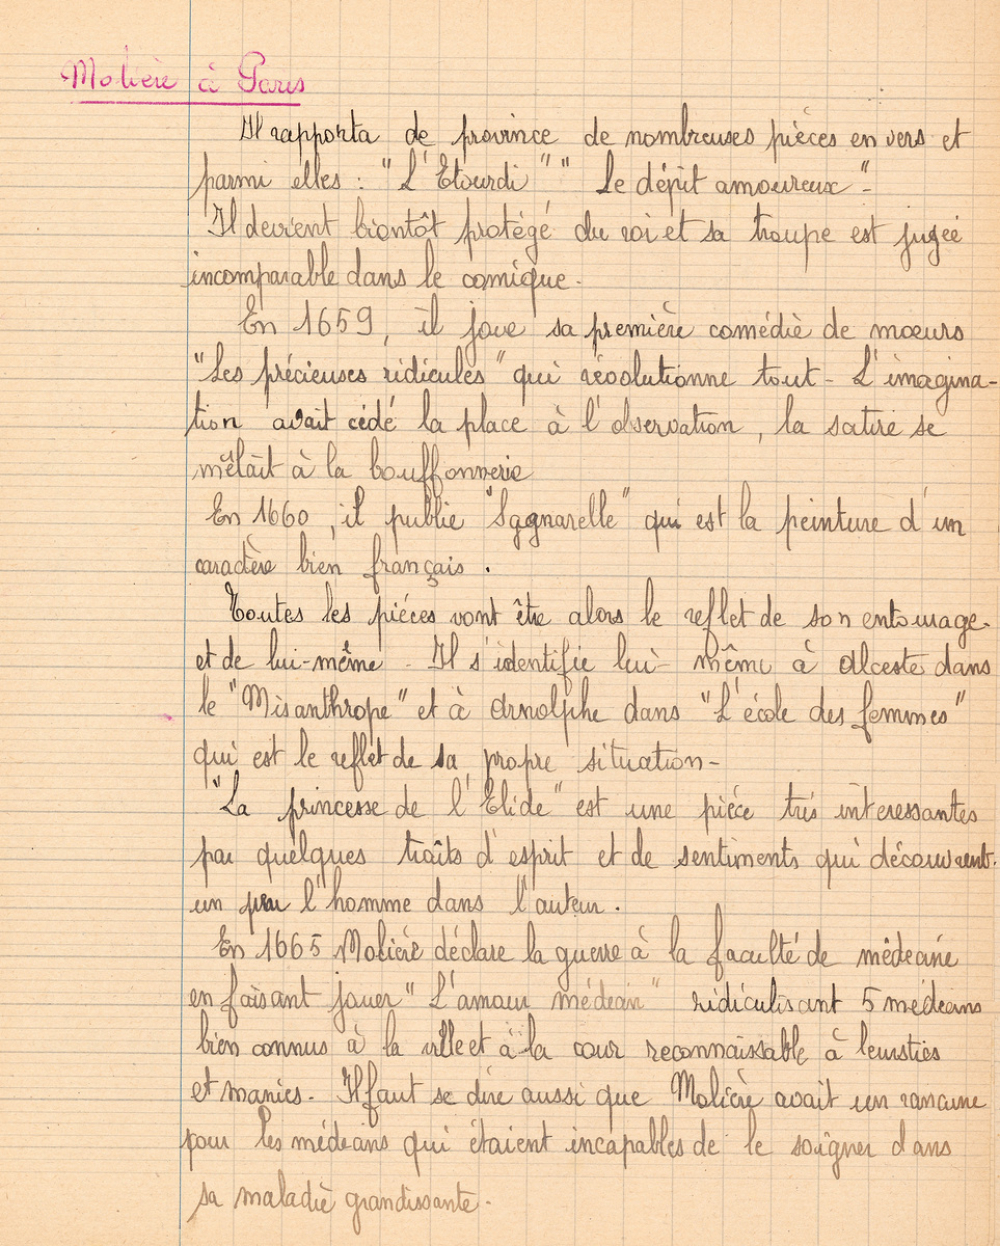 Molière à Paris
Il rapporta de province de nombreuses pièces en vers et
parmi elles : "L'Etourdi" "Le dépit amoureux" -
Il devient bientôt protégé du roi et sa troupe est jugée
incomparable dans le comique.
En 1659, il joue sa première comédie de moeurs
"Les précieuses ridicules" qui révolutionne tout - L'imagina-
tion avait cédé la place à l'observation, la satire se
mêlait à la bouffonnerie
En 1660, il publie "Sganarelle" qui est la peinture d'un
caractère bien français.
Toutes les pièces vont être alors le reflet de son entourage
et de lui-même. Il s'identifie lui-même à Alceste dans
le "Misanthrope" et à Arnolphe dans "L'école des femmes"
qui est le reflet de sa propre situation -
"La princesse de l'Elide" est une pièce très interessantes
par quelques traits d'esprit et de sentiments qui découvrent
un peu l'homme dans l'auteur.
En 1665 Molière déclare la guerre à la faculté de médecine
en faisant jouer "L'amour médecin" ridiculisant 5 médecins
bien connus à la ville et à la cour reconnaissable à leurs tics
et manies. Il faut se dire aussi que Molière avait un rancune
pour les médecins qui étaient incapables de le soigner dans
sa maladie grandissante.